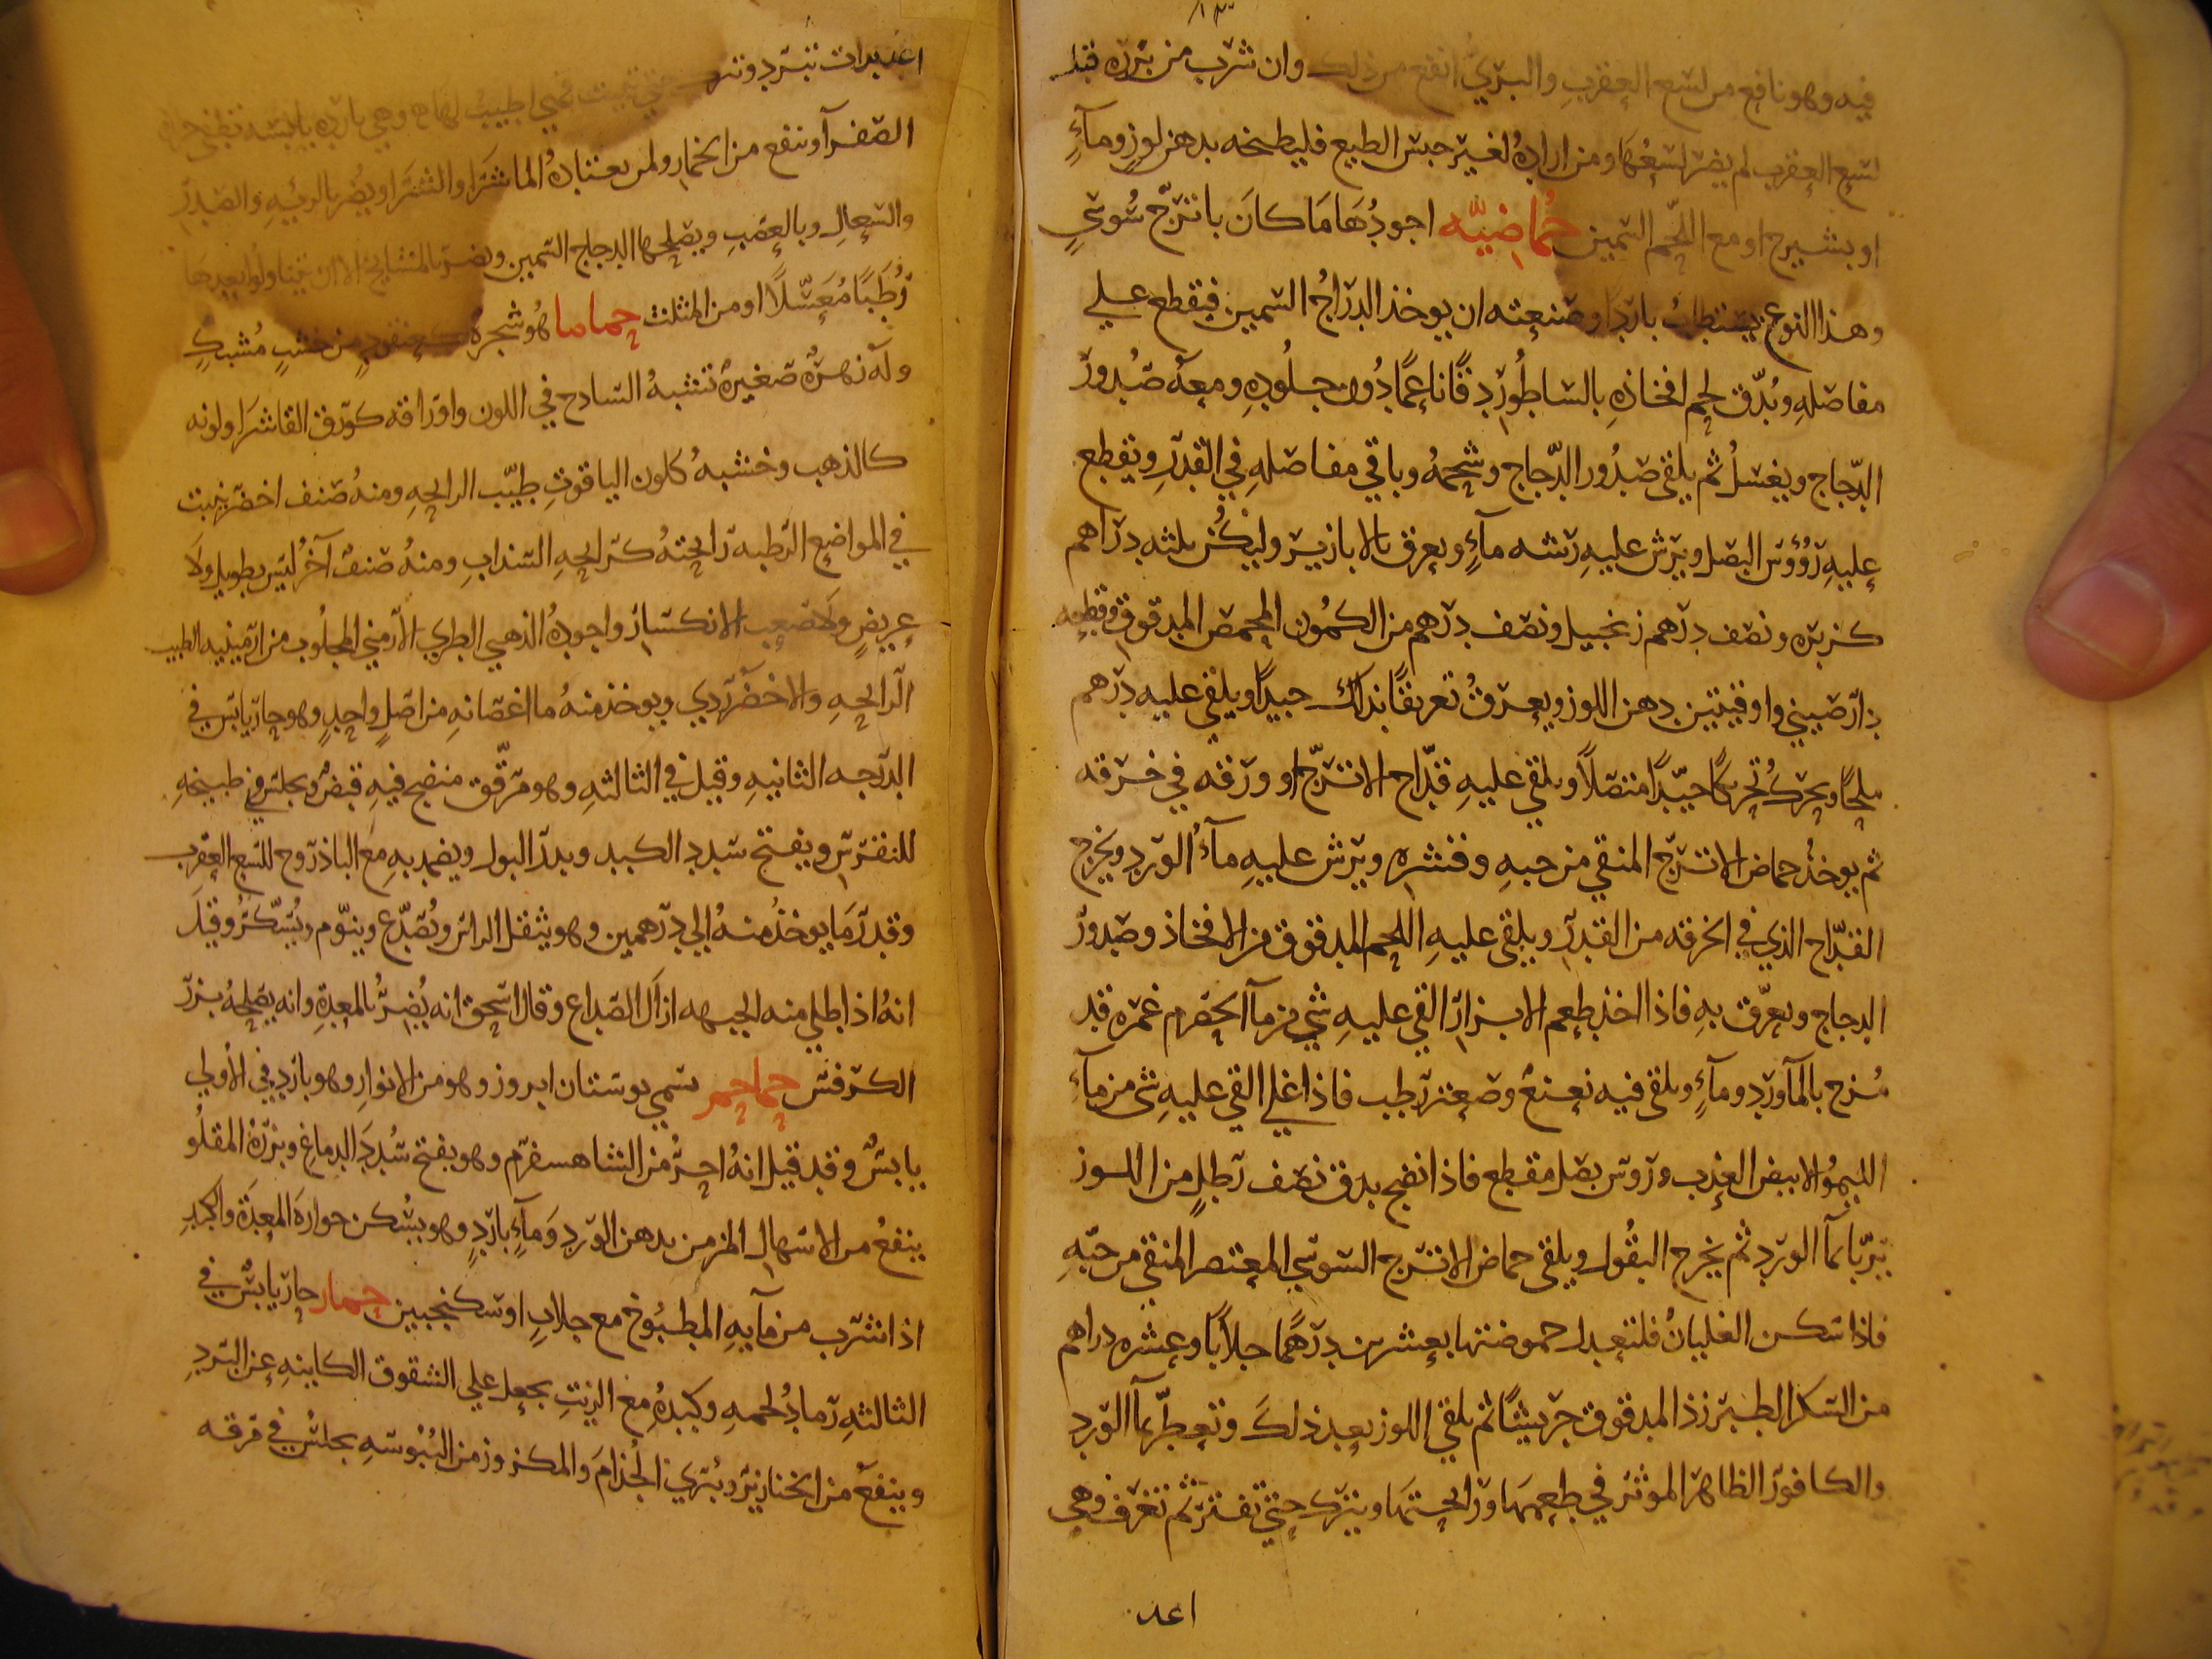 فيه وهو نافع من لسع العقرب والبري انفع من ذلك وان شرب من بزره قبل
لسع العقرب لم يضر لسعها ومن اراده لغير حبس الطبع فليطبخه بدهن لوز ومآءٍ
او بشيرج او مع اللحم السمين حُماضيّه اجودُهَا مَا كانَ باترّج سُوسيٍ
وهذا النوع يستطاب باردا وصنعته ان يوخذ الدرّاجُ السمين فيقطع علي
مفاصلهِ ويُدّق لحم افخاذهِ بالساطُور دقًا ناعمًا دُون جلُودهِ ومعهُ صُدُور
الدّجاج ويغسلُ ثم يلقى صدُور الدّجاج وشحمهُ وباقي مفاصلهِ في القدرِ ويقطع
عليهِ رُؤوس البصل ويرش عليهِ رشه مآءٍ ويعرق بالابازير وليكُن ثلثه دراهم
كزبره ونصف درهم زنجبيل ونصف درهم من الكمُون المحمص المدقوق وقطعه
دارصيني واوقيتين دهن اللوز ويعرقُ تعريقًا بذلك جيدًا ويلقى عليه درهم
ملحًا ويحركُ تحريكًا جيّدًا متصلًا ويلقى عليهِ قدّاح الاترّج او ورقه في خرقه
ثم يوخذُ حماض الاترّج المنقي من حبهِ وقشرهِ ويرش عليهِ مآءُ الورد ويخرج
القدّاح الذي في الخرقه من القدرِ ويلقى عليهِ اللحم المدقوق من الافخاذ وصدور
الدجاج ويعرّق بهِ فاذا اخذ طعم الابزار القي عليهِ شي من مآ الحصرم غمره قد
مُزج بالمآورد ومآءٍ ويلقى فيه نعنع وصعتر رطب فاذا غلي القي عليهِ شي من مآءِ
الليمُو الابيض العذب وروس بصل مقطع فاذا انضج يدق نصف رطلٍ من اللوز
يربّا بمآ الورد ثم يخرج البقُول ويلقى حماض الاترج السوسي المعتصر المنقي من حبّهِ
فاذا سكن الغليانُ فلتعدل حموضتها بعشرين درهمًا جلابًا وعشره دراهم
من السكر الطبرزذ المدقوق جريشًا ثم يلقي اللوز بعد ذلكَ وتعطّر بمآ الورد
والكافور الظاهر الموثر في طعمهَا ورايحتهَا ويترك حتي تفتر ثم تغرف وهي
اعد
الصفرآ وتنفع من الخمار ولمن يعتادهُ الماشرَا والشرَا ويضُر بالريهِ والصدرِ
والسعالِ وبالعصبِ ويصلحها الدجاج السمين ويضر بالمشايخ الا ان يتناولُوا بعدهَا
رُطَبًا مُعَسّلًا او من المثلث حماما هُو شجرهُ كعنقودٍ من خشبٍ مُشبكٍ
وله زهرهٌ صغيرهٌ تشبهُ السادج في اللون واوراقه كورق الفاشرَا ولونه
كالذهب وخشبهُ كلون الياقوتِ طيّب الرايحهِ ومنهُ صنف اخضر ينبت
في المواضع الرطبه رايحتهُ كرايحهِ السذابِ ومنهُ صنفُ آخرُ ليس بطويل ولَا
عريضٍ ولا صعب الانكسار واجودهُ الذهبي الطري الارمني المجلُوب من ارمينيه الطيب
الرايحهِ والاخضَر ردي ويوخذ منهُ ما اغصانهِ من اصلٍ واحدٍ وهو حار يابس في
الدرجه الثانيهِ وقيل في الثالثهِ وهو مرقّق منضج فيهِ قبضٌ ويجلس في طبيخهِ
للنقرس ويفتح سدد الكبد ويدرّ البول ويضمد بهِ مع الباذروج للسع العقرب
وقدر مَا يوخذُ منهُ الي درهمين وهو يثقل الراس ويُصَدّع وينوّم ويُسّكرُ وقيلَ
انهُ اذا طلي منه الجبهه ازالَ الصداع وقال اسحق انه يُضرُّ بالمعدةِ وانه يصلحهُ بزر
الكرفس حماحم يسمي بوستان ابروز وهو من الانوارِ وهو بارد في الأولي
يابسٌ وقد قيل انهُ احرُّ من الشاهسفرم وهو يفتح سُددَ الدماغ وبزرهُ المقلُو
ينفعُ من الاسهال المزمن بدهن الورد وَمآءٍ باردٍ وهو يسُكن حرارهَ المعدَة والكبدِ
اذا شرب من مآيهِ المطبُوخ مع جلابٍ او سكنجبين حمار حار يابسٌ في
الثالثهِ رمادُ لحمهِ وكبدهُ مع الزيتِ يجعل علي الشقوق الكاينهِ عن البردِ
وينفعَ من الخنازير ويُبَري الجُذامَ والمكزوز من اليُبُوسهِ يجلسُ في مرقه